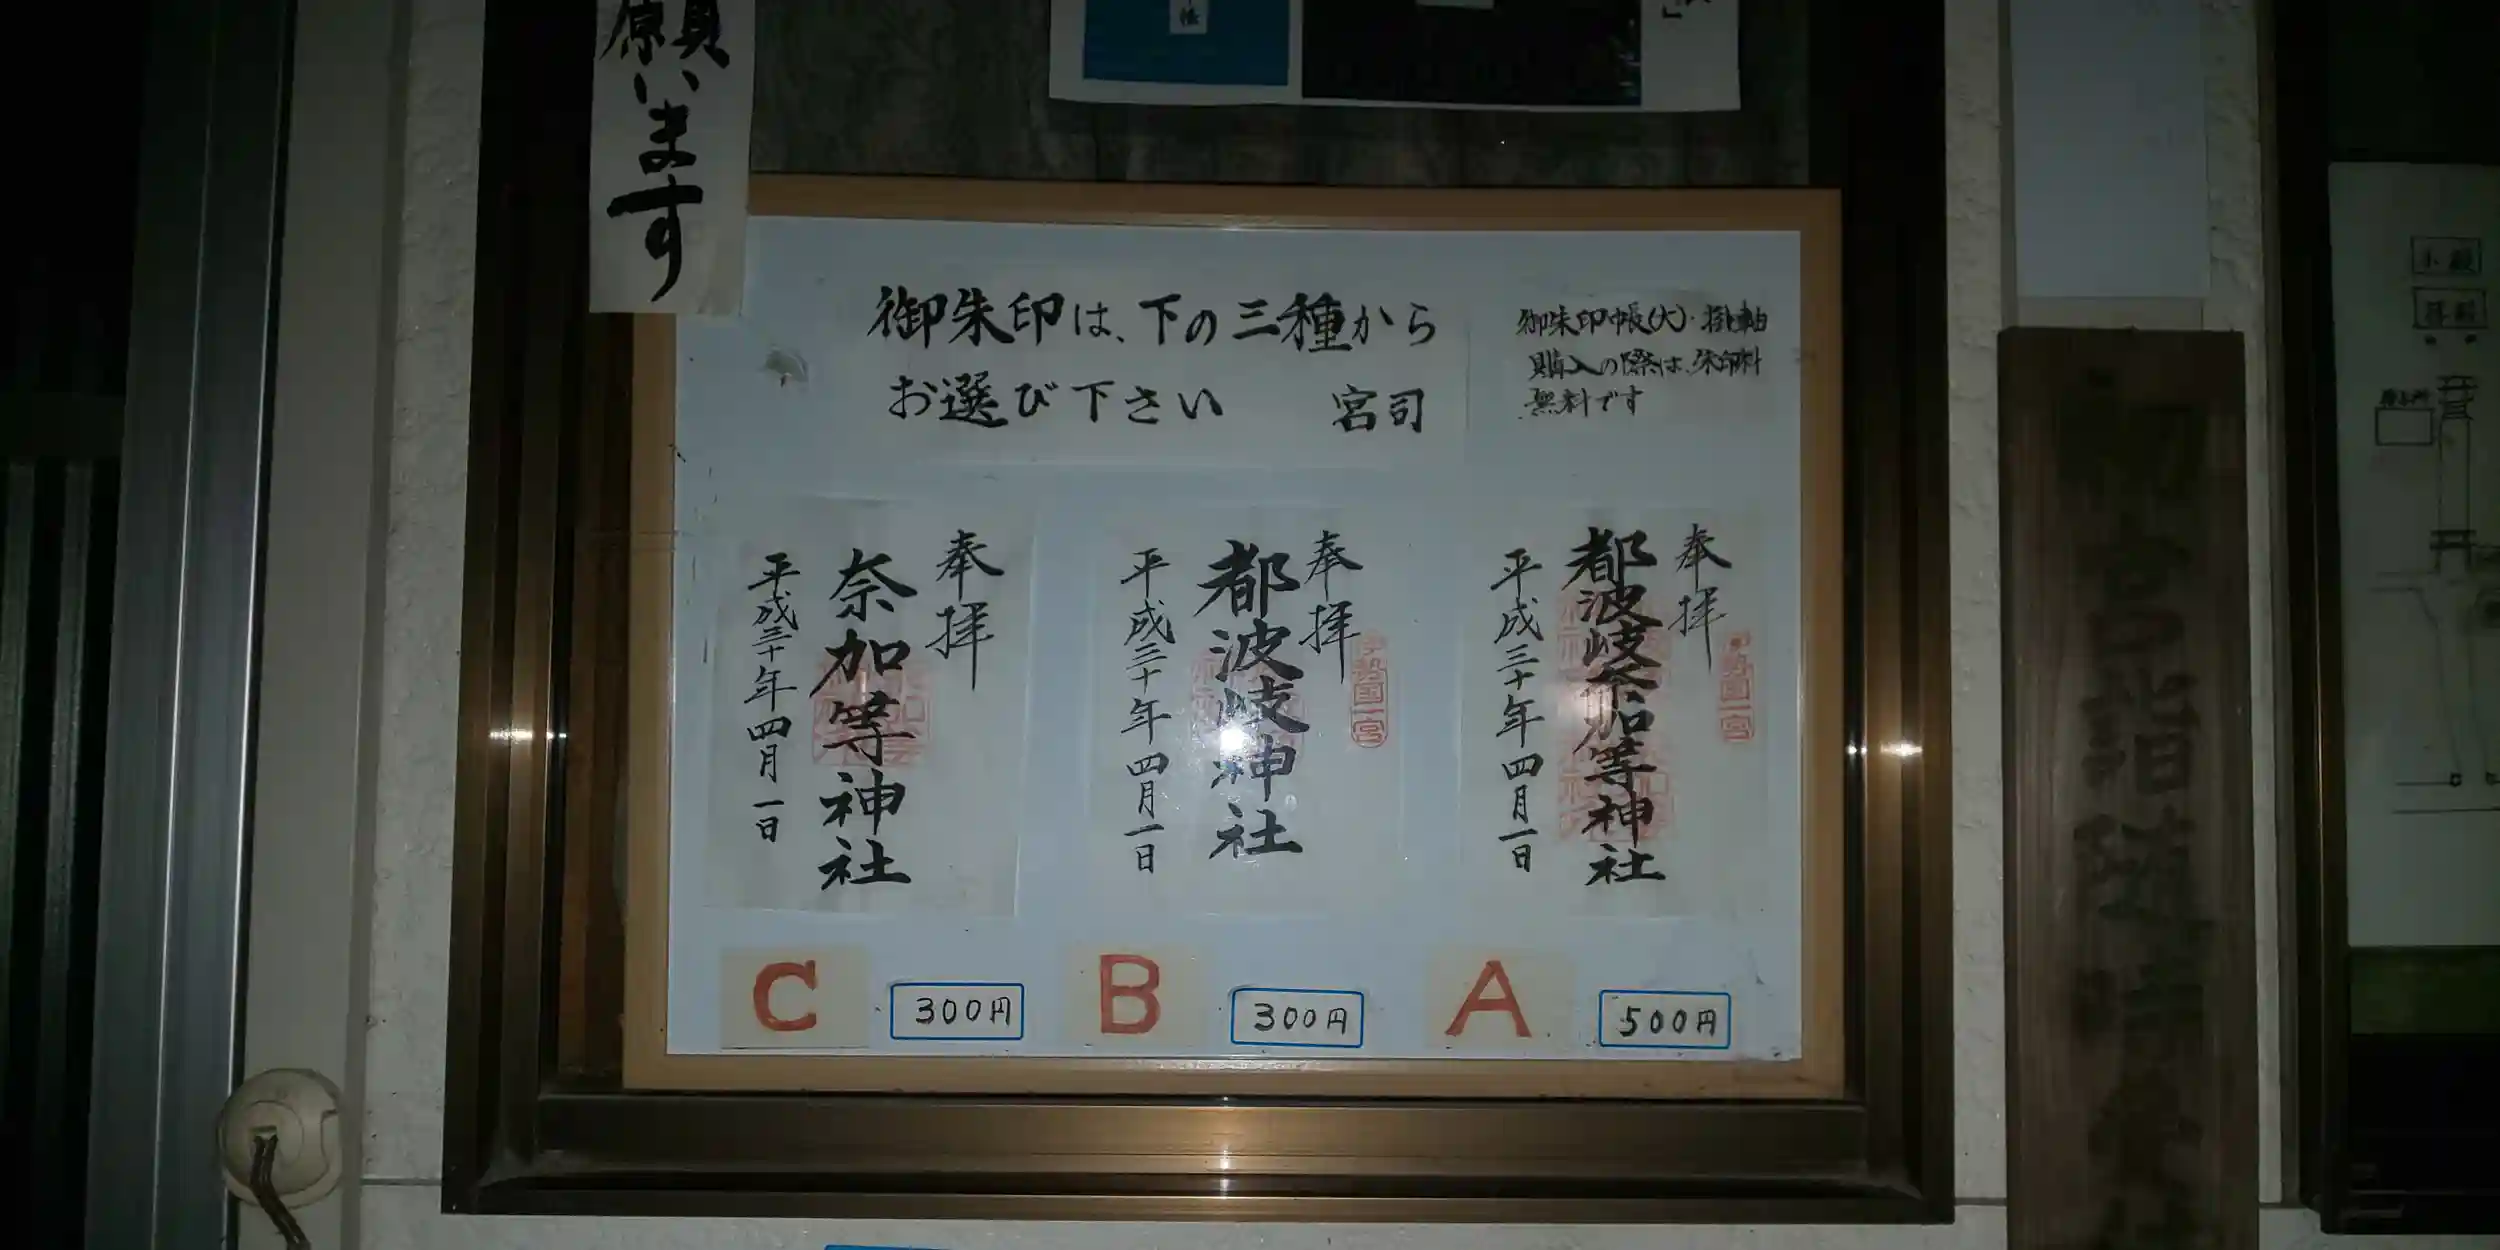 願います
御朱印は、下の三種から
お選び下さい　宮司
御朱印帳(大)・掛軸
購入の際は、朱印料
無料です
奉拝
伊勢国一宮
都波岐奈加等神社
平成三十年四月一日
A
500円
奉拝
伊勢国一宮
都波岐神社
平成三十年四月一日
B
300円
奉拝
奈加等神社
平成三十年四月一日
C
300円